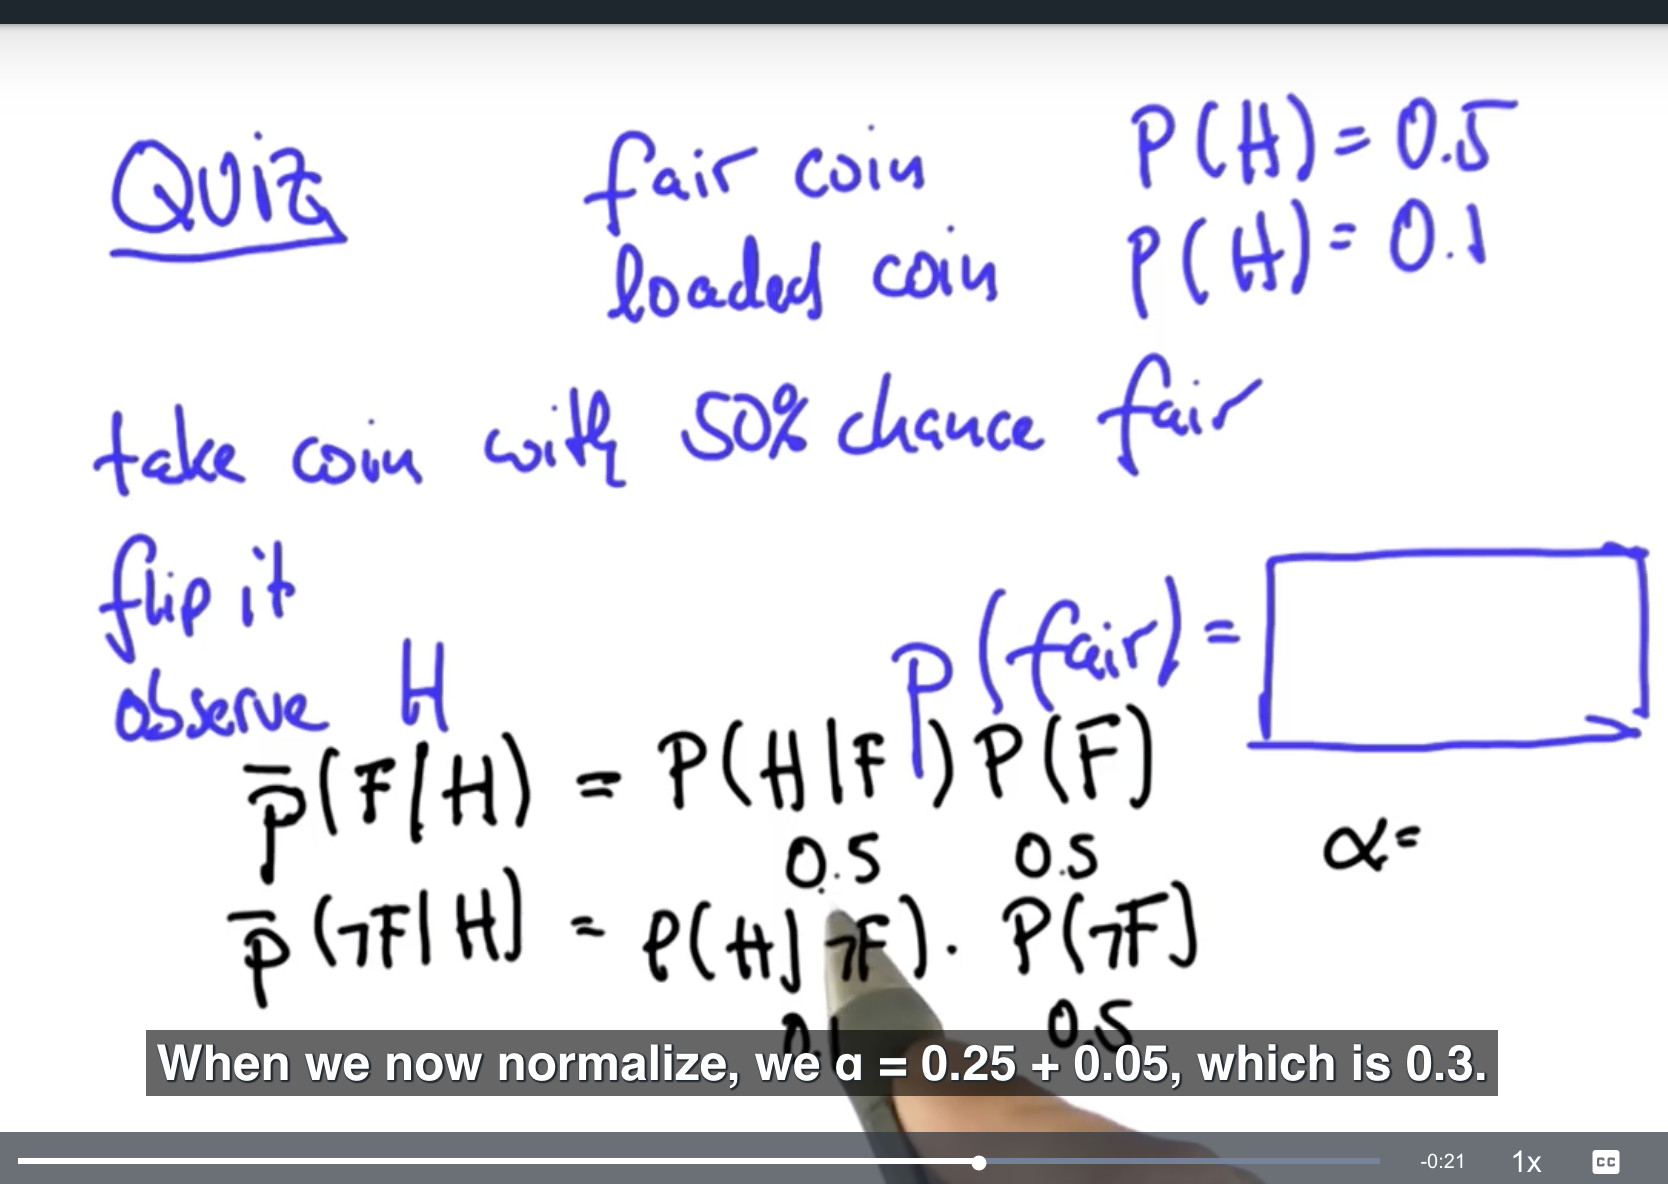 Quiz
fair coin P(H) = 0.5
loaded coin P(H) = 0.1
take coin with 50% chance fair
flip it
observe H
P(fair) =
P̅(F|H) = P(H|F) P(F)
0.5 0.5
α=
P̅(¬F|H) = P(H|¬F) · P(¬F)
0.1 0.5
When we now normalize, we α = 0.25 + 0.05, which is 0.3.
-0:21 1x CC